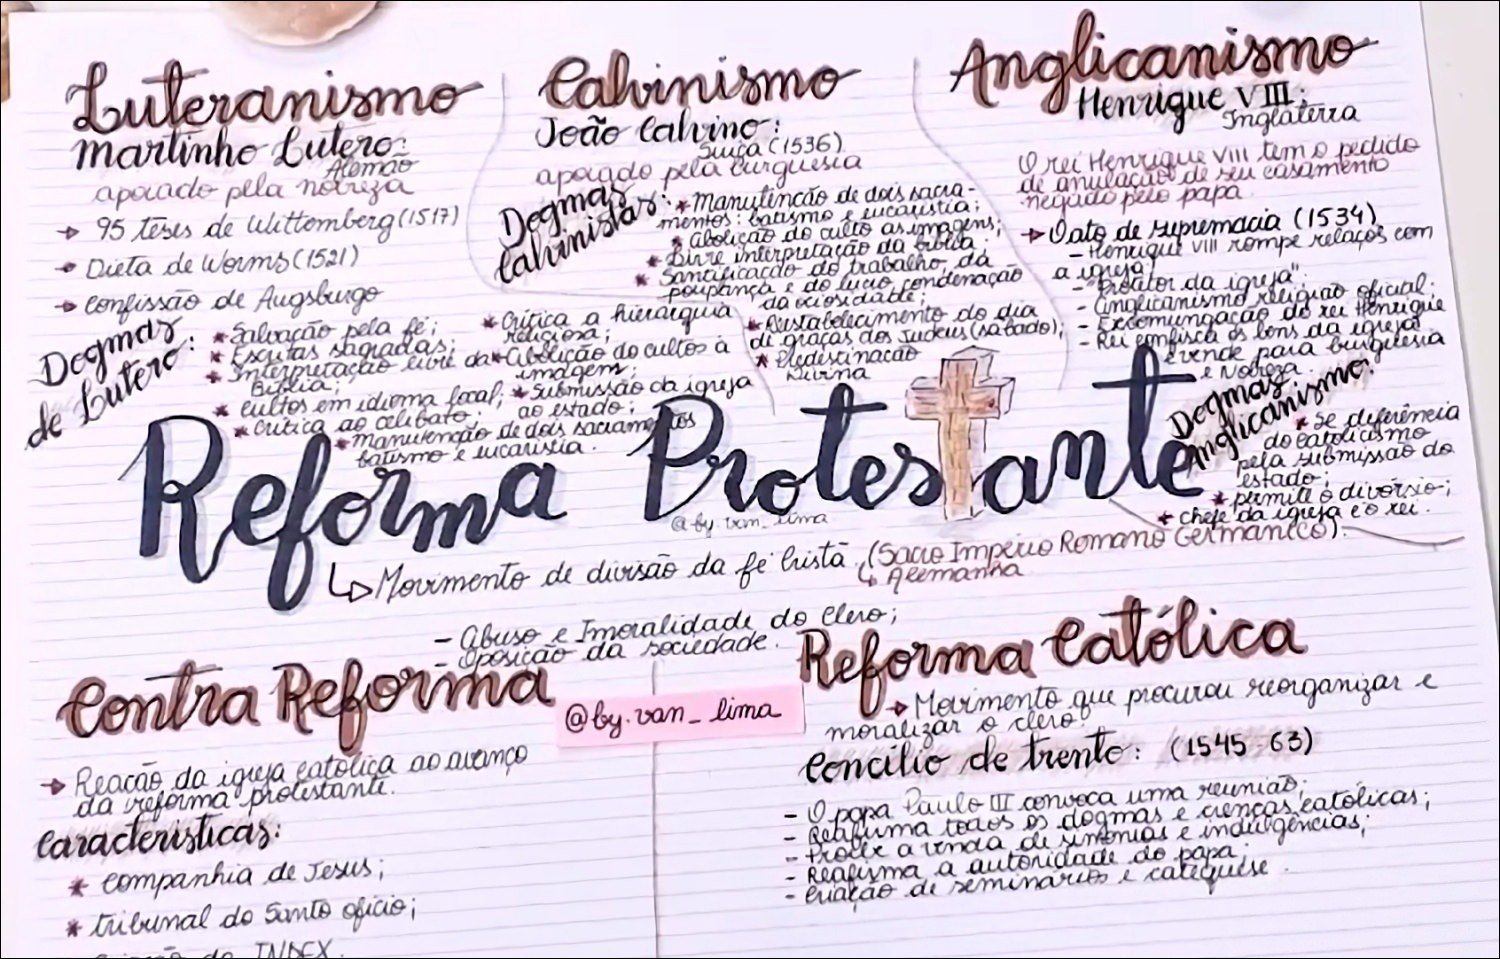 Luteranismo
Martinho Lutero:
Alemão
apoiado pela nobreza
→ 95 teses de Wittemberg (1517)
→ Dieta de Worms (1521)
→ Confissão de Augsburgo
Dogmas
de Lutero:
* Salvação pela fé;
* Escritas sagradas;
* Interpretação livre da
Bíblia;
* Cultos em idioma local;
* Crítica ao celibato;
* Manutenção de dois sacramentos
batismo e eucaristia.
* Crítica a hierarquia
religiosa;
* Abolição do cultos à
imagem;
* Submissão da igreja
ao estado;
Calvinismo
João Calvino:
Suiça (1536)
apoiado pela burguesia
Dogmas
Calvinistas:
* Manutenção de dois sacra-
mentos: batismo e eucaristia;
* Abolição do culto as imagens;
* Livre interpretação da bíblia.
* Santificação do trabalho, da
poupança e do lucro, condenação
da ociosidade;
* Restabelecimento do dia
de graças dos Judeus (sabado);
* Predestinação
Divina
Anglicanismo
Henrique VIII:
Inglaterra
O rei Henrique VIII tem o pedido
de anulação de seu casamento
negado pelo papa.
→ O ato de supremacia (1534)
- Henrique VIII rompe relaços com
a igreja!
- "Protetor da igreja".
- Anglicanismo religião oficial;
- Excomungação do rei Henrique
- Rei confisca os bens da igreja
e vende para burguesia
e Nobreza
Dogmas
Anglicanismo:
* Se diferência
do catolicismo
pela submissão do
estado;
* permite o divórsio;
* chefe da igreja é o rei.
Reforma Protestante
@by.van_lima
↳ Movimento de divisão da fé Cristã. (Sacro Império Romano Germanico).
↳ Alemanha
- Abuso e Imoralidade do Clero;
- Oposição da sociedade.
Contra Reforma
→ Reação da igreja católica ao avanço
da reforma protestante.
Características:
* Companhia de Jesus;
* tribunal do Santo ofício;
INDEX.
@by.van_lima
Reforma Católica
→ Movimento que procurou reorganizar e
moralizar o clero.
Concílio de trento: (1545-63)
- O papa Paulo III convoca uma reunião;
- Reafirma todos os dogmas e crenças católicas;
- Proibe a venda de simonias e indulgências;
- Reafisma a autoridade do papa;
- Criação de seminários e catequese.